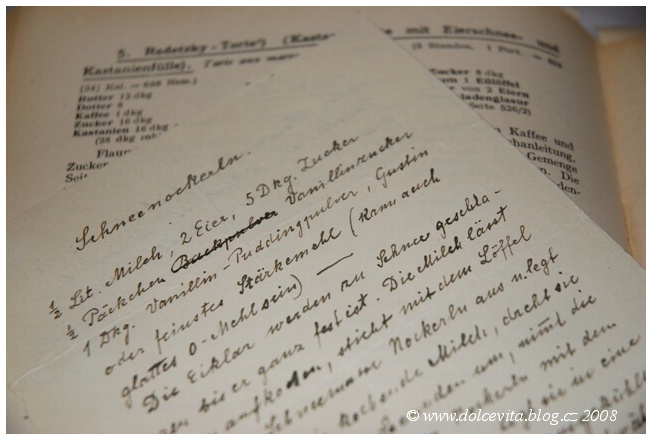 5. Radetzky-Torte (Kasta mit Eierschnee- und
Kastanienfülle). Torte aus
(3 Stunden, 1 Port. =
Butter 12 dkg
Dotter 8
Kaffee 1 dkg
Zucker 16 dkg
Kastanien 16 dkg
(28 dkg
Zucker 8 dkg
1 Eßlöffel
von 2 Eiern
ladenglasur
Seite 526/2)
Flaum
Zucker
Kaffee und
chanleitung,
Gemenge
Die
Schneenockerln.
½ Lit. Milch, 2 Eier, 5 Dkg. Zucker
½ Päckchen Backpulver Vanillinzucker
1 Dkg. Vanillin-Puddingpulver, Gustin
oder feinstes Stärkemehl (kann auch
glattes 0-Mehl sein) —
Die Eiklar werden zu Schnee geschla-
gen bis er ganz fest ist. Die Milch lässt
aufkochen, sticht mit dem Löffel
Nockerln aus u. legt
kochende Milch, dreht sie
um, nimmt die
Nockerln mit dem
sie in eine
© www.dolcevita.blog.cz 2008